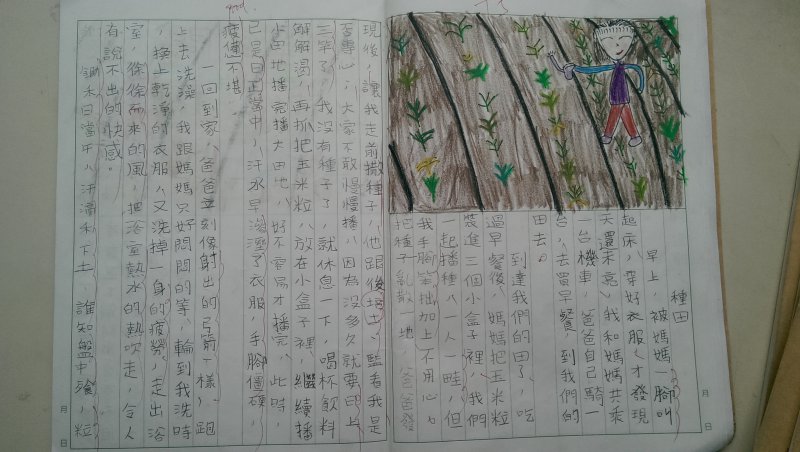 種田
早上,被媽媽一腳叫
起床,穿好衣服,才發現
天還未亮,我和媽媽共乘
一台機車,爸爸自己騎一
台,去買早餐,到我們的
田去。
到達我們的田了,吃
過早餐後,媽媽把玉米粒
裝進三個小盒子裡,我們
一起播種,一人一畦,但
我手腳笨拙加上不用心,
把種子亂散一地,爸爸發
現後,讓我走前撒種子,他跟後培土、監看我是
否專心,大家不敢慢慢播,因為沒多久就要日上
三竿了,我沒有種子了,就休息一下,喝杯飲料
解解渴,再抓把玉米粒,放在小盒子裡,繼續播
小田地播完播大田地,好不容易才播完,此時,
已是日正當中,汗水早溼透了衣服,手腳僵硬,
疲憊不堪。
一回到家,爸爸立刻像射出的弓箭一樣,跑
上去洗澡,我跟媽媽只好悶悶的等,輪到我洗時
,換上乾淨的衣服,又洗掉一身的疲勞,走出浴
室,徐徐而來的風,把浴室熱水的熱吹走,令人
有說不出的快感。
鋤禾日當中,汗滴禾下土,誰知盤中飧,粒
月 日
月 日